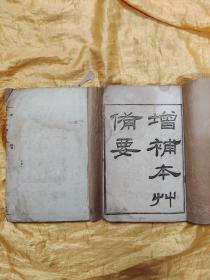 增補本艸
備要